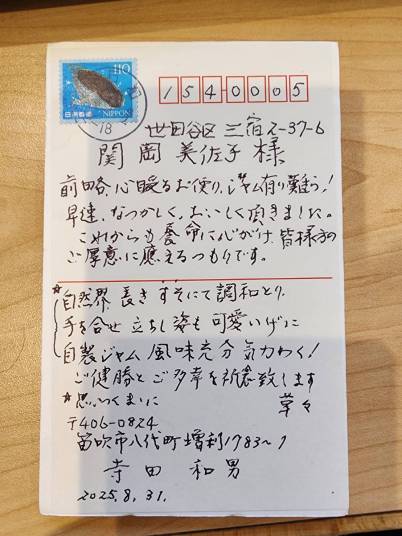 110
日本郵便 NIPPON
18
1540005
世田谷区三宿2-37-6
関岡美佐子様
前略、心暖るお便り、ジャム有り難う!
早速、なつかしく、おいしく頂きました。
これからも養命に心がけ、皆様方の
ご厚意に應えるつもりです。
☆自然界 長き すそにて 調和とり、
手を合せ 立ちし 姿も 可愛いげに
自製ジャム 風味充分 気力わく!
ご健勝と ご多幸を祈念致します
☆思いつくまゝに 草々
〒406-0824
笛吹市八代町増利1783〜1
寺田 和男
2025.8.31.